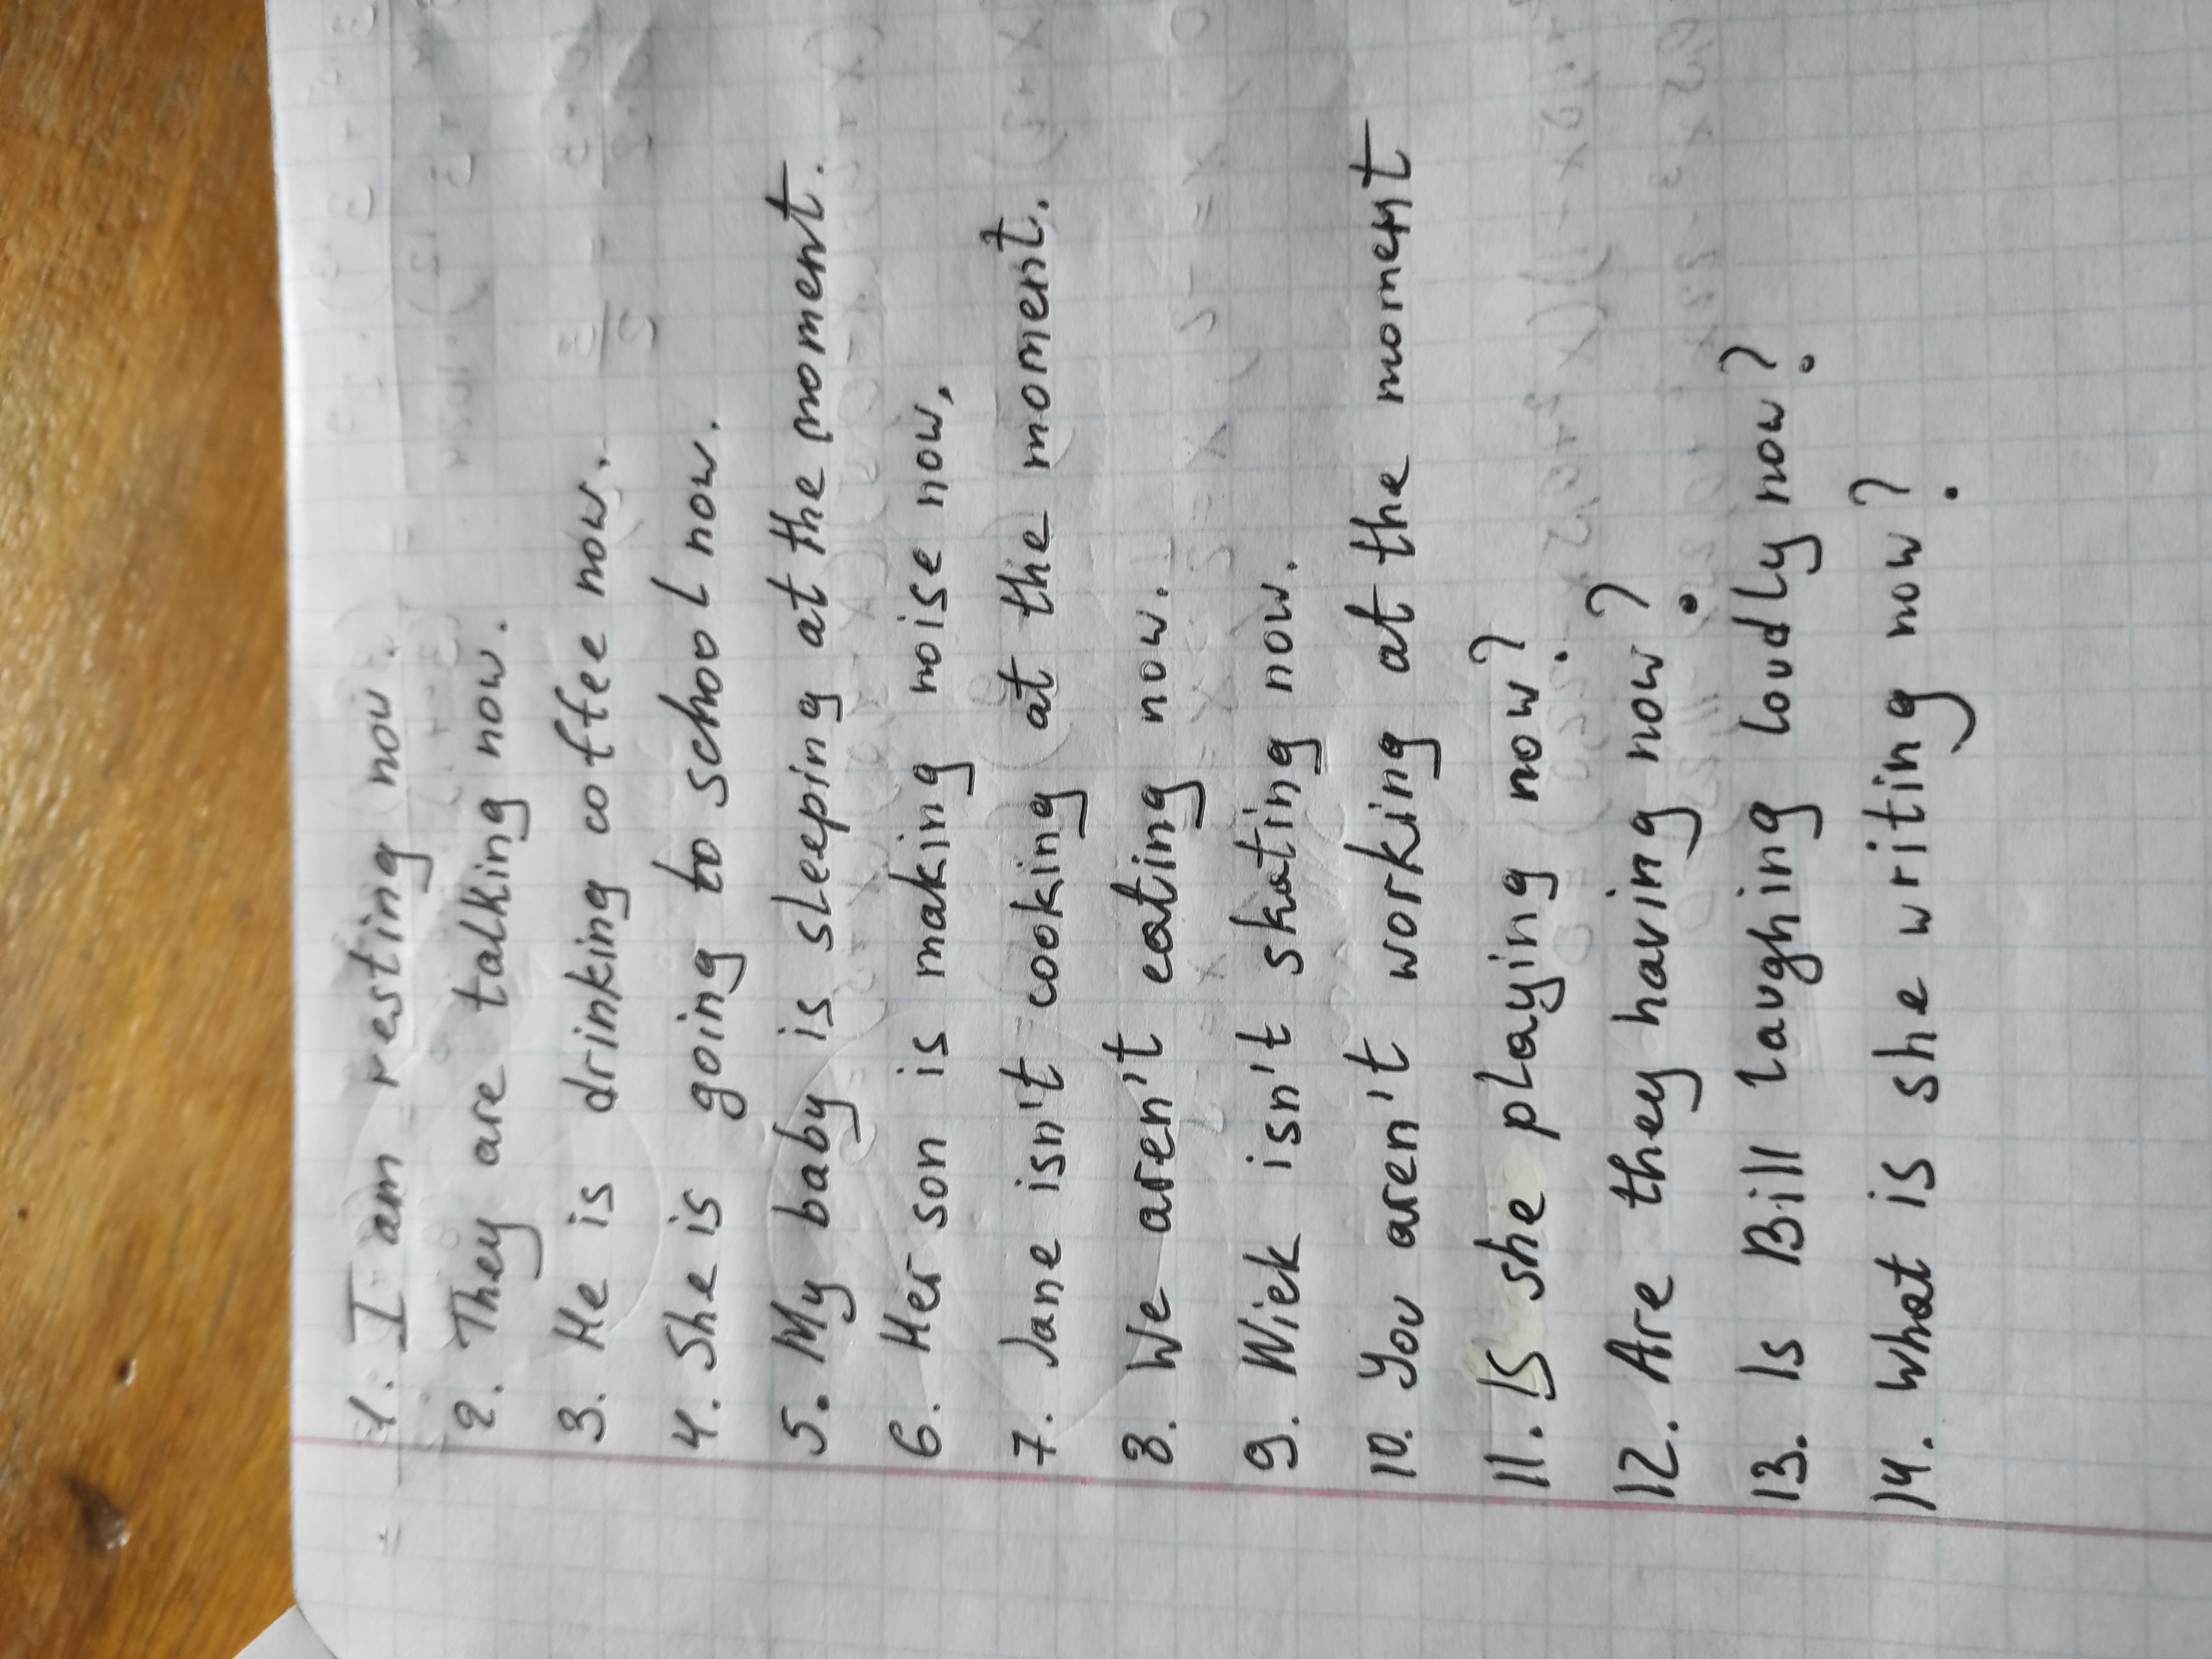 1. I am resting now.
2. They are talking now.
3. He is drinking coffee now.
4. She is going to school now.
5. My baby is sleeping at the moment.
6. Her son is making noise now.
7. Jane isn't cooking at the moment.
8. We aren't eating now.
9. Wick isn't skating now.
10. You aren't working at the moment
11. Is she playing now?
12. Are they having now?
13. Is Bill laughing loudly now?
14. What is she writing now?